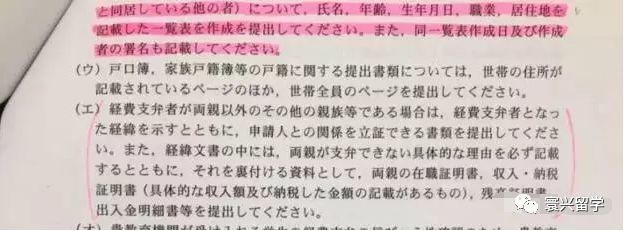 と同居している他の者）について，氏名，年齢，生年月日，職業，居住地を
記載した一覧表を作成を提出してください。また，同一覧表作成日及び作成
者の署名も記載してください。
（ウ）戸口簿，家族戸籍簿等の戸籍に関する提出書類については，世帯の住所が
記載されているページのほか，世帯全員のページを提出してください。
（エ）経費支弁者が両親以外のその他の親族等である場合は，経費支弁者となっ
た経緯を示すとともに，申請人との関係を立証できる書類を提出してくださ
い。また，経緯文書の中には，両親が支弁できない具体的な理由を必ず記載
するとともに，それを裏付ける資料として，両親の在職証明書，収入・納税
証明書（具体的な収入額及び納税した金額の記載があるもの），残高証明書，
出入金明細書等を提出してください。
寰兴留学